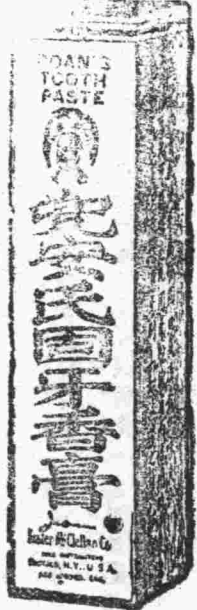 DOAN'S
TOOTH
PASTE
兜安氏固牙香膏
Foster-McClellan Co
BUFFALO, N.Y., U.S.A.